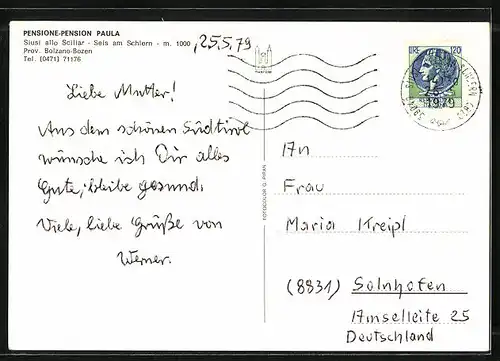 PENSIONE-PENSION PAULA
Siusi allo Sciliar - Seis am Schlern - m. 1000
Prov. Bolzano-Bozen
Tel. (0471) 71176
25.5.79
Liebe Mutter!
Aus dem schönen Südtirol
wünsche ich Dir alles
Gute, bleibe gesund.
Viele, liebe Grüße von
Werner.
LIRE 120
1979
An
Frau
Maria Kreipl
(8831) Solnhofen
Amselleite 25
Deutschland